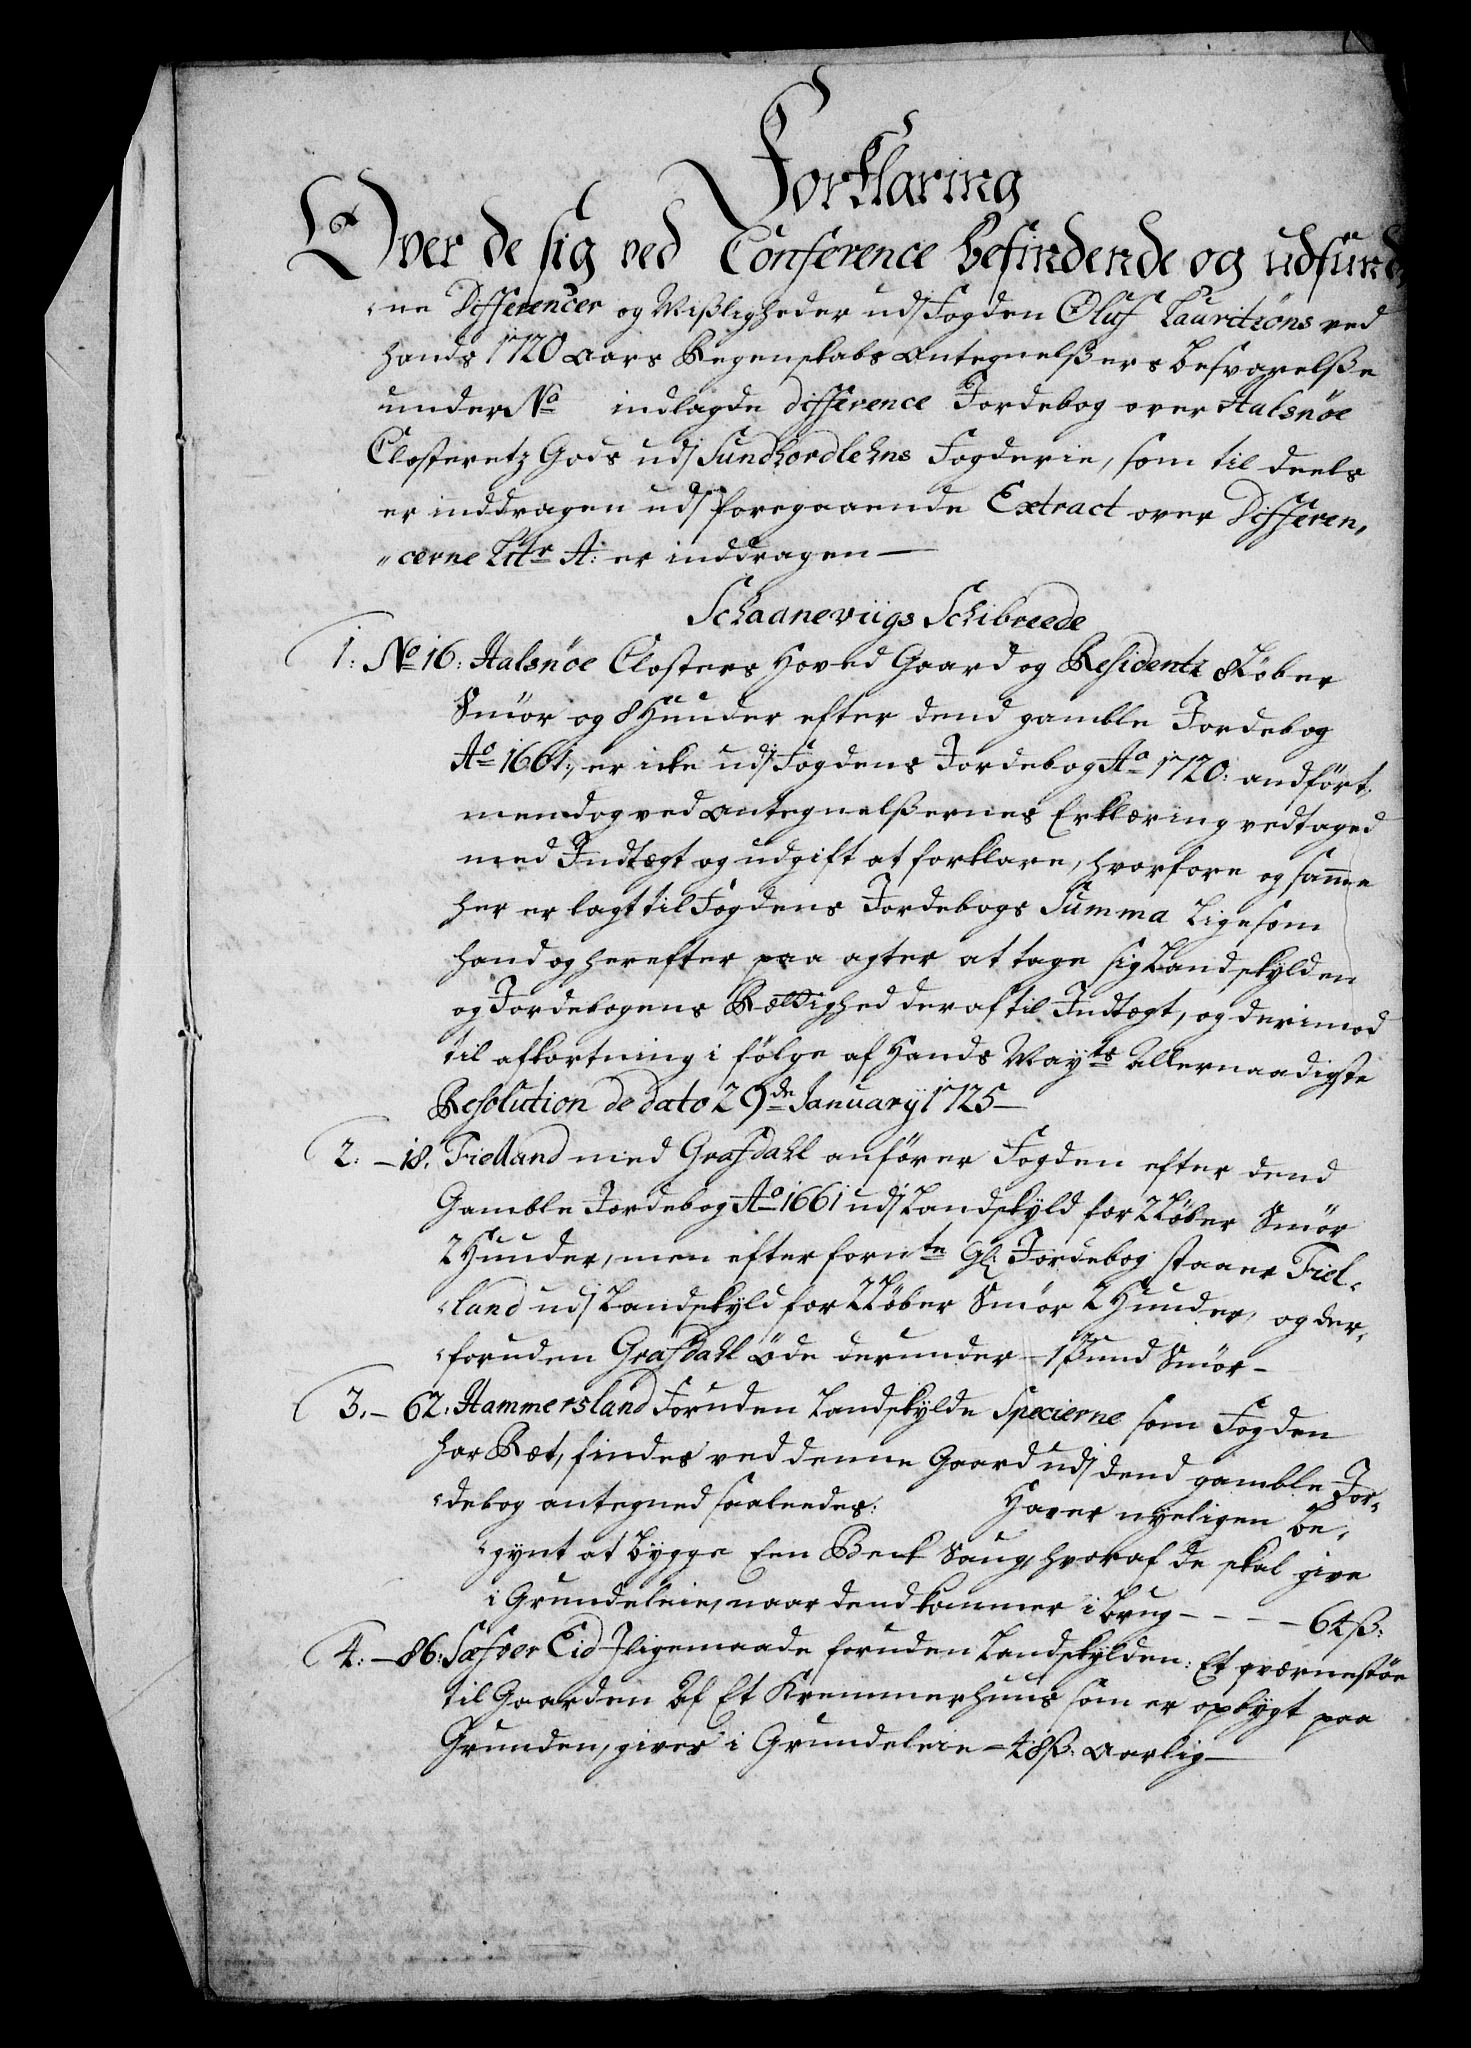 Forklaring
Over de sig ved Conference befindende og udfund,
ne Differencer og Mißligheder udj Fogden Oluf Lauritsöns ved
hands 1720 Aars Regenskabs Antegnelßers besvarelße
under No indlagde difference Jordebog over Halsnöe
Closteretz Gods udj Sundhordlehns Fogderie, som til deels
er inddragen udj foregaaende Extract over Differen,
cerne Litr A: er inddragen
Schaaneviigs Schibreede
1: No 16: Halsnöe Closters Hoved Gaard og Residentz 8 Löber
Smör og 8 Huuder efter dend gamble Jordebog
Ao 1661:, er icke udj Fogdens Jordebog Ao 1720: andfört,
men dog ved Antegnelßernes Erklæring vedtaged
med Indtægt og udgift at forklare, hvorfore og samme
her er lagt til Fogdens Jordebogs Summa Ligesom
hand og herefter paa agter at tage sig Landskylden
og Jordebogens Rættighed deraf til Indtægt, og derimod
til afkortning i fölge af Hands Mayts Allernaadigste
Resolution de dato 29de January 1725
2. - 18. Fielland med Grafdahl anförer Fogden efter dend
Gamble Jordebog Ao 1661 udj Landskyld for 2 Löber Smör
2 Huuder, men efter fornte Gl: Jordebog staaer Fiel-
land udj Landskyld for 2 Löber Smör 2 Huuder, og der-
foruden Grafdahl Öde derunder - 1 Pund Smör -
3. - 62. Hammersland Foruden Landskylds Specierne som Fogden
har Ræt, findes ved denne Gaard udj dend gamble Jor-
debog antegned saaleedes: Haver nyeligen be-
gynt at bygge Een Beck Saug, hvoraf de skal give
i Grundeleie, naar dend kommer i brug - - - - 64 ß:
4. - 86: Sæfver Eid Jligemaade foruden Landskylden: Et qværnestöe
til Gaarden Af Et Kremmerhuus som er opbygt paa
Grunden, gives i Grundeleie - 48 ß: Aarlig